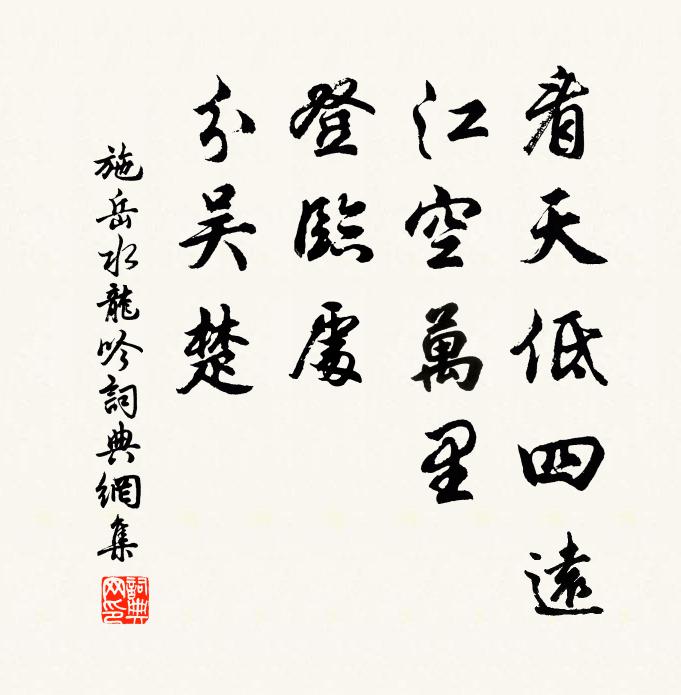 看天低四遠
江空萬里
登臨處
分吴楚
施岳水龍吟詞典網集
詞典网印